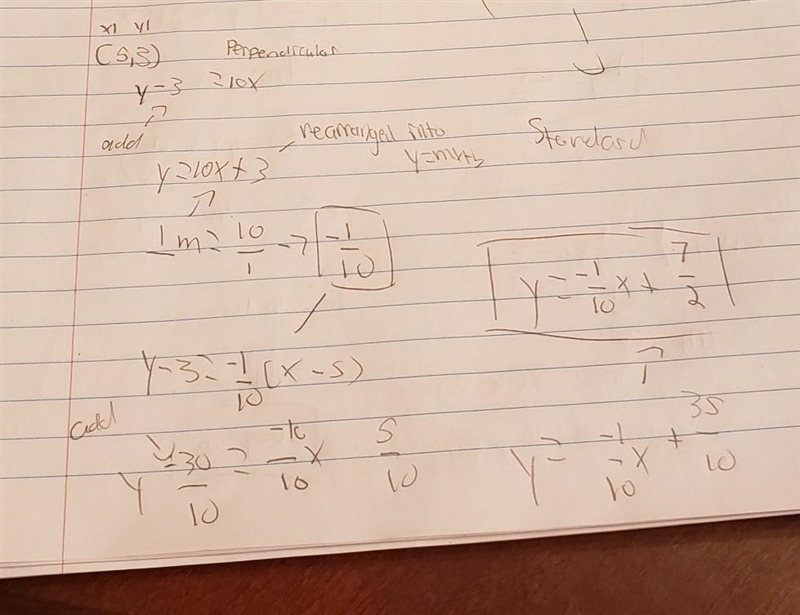 x1 y1
(5,3) Perpendicular
y-3 =10x
add
rearranged into Standard
y=mx+b
y=10x+3
⊥m=10/1 → -1/10
y=-1/10x+7/2
y-3=-1/10(x-5)
add
y-30/10= /10x 5/10
y=-1/10x+35/10